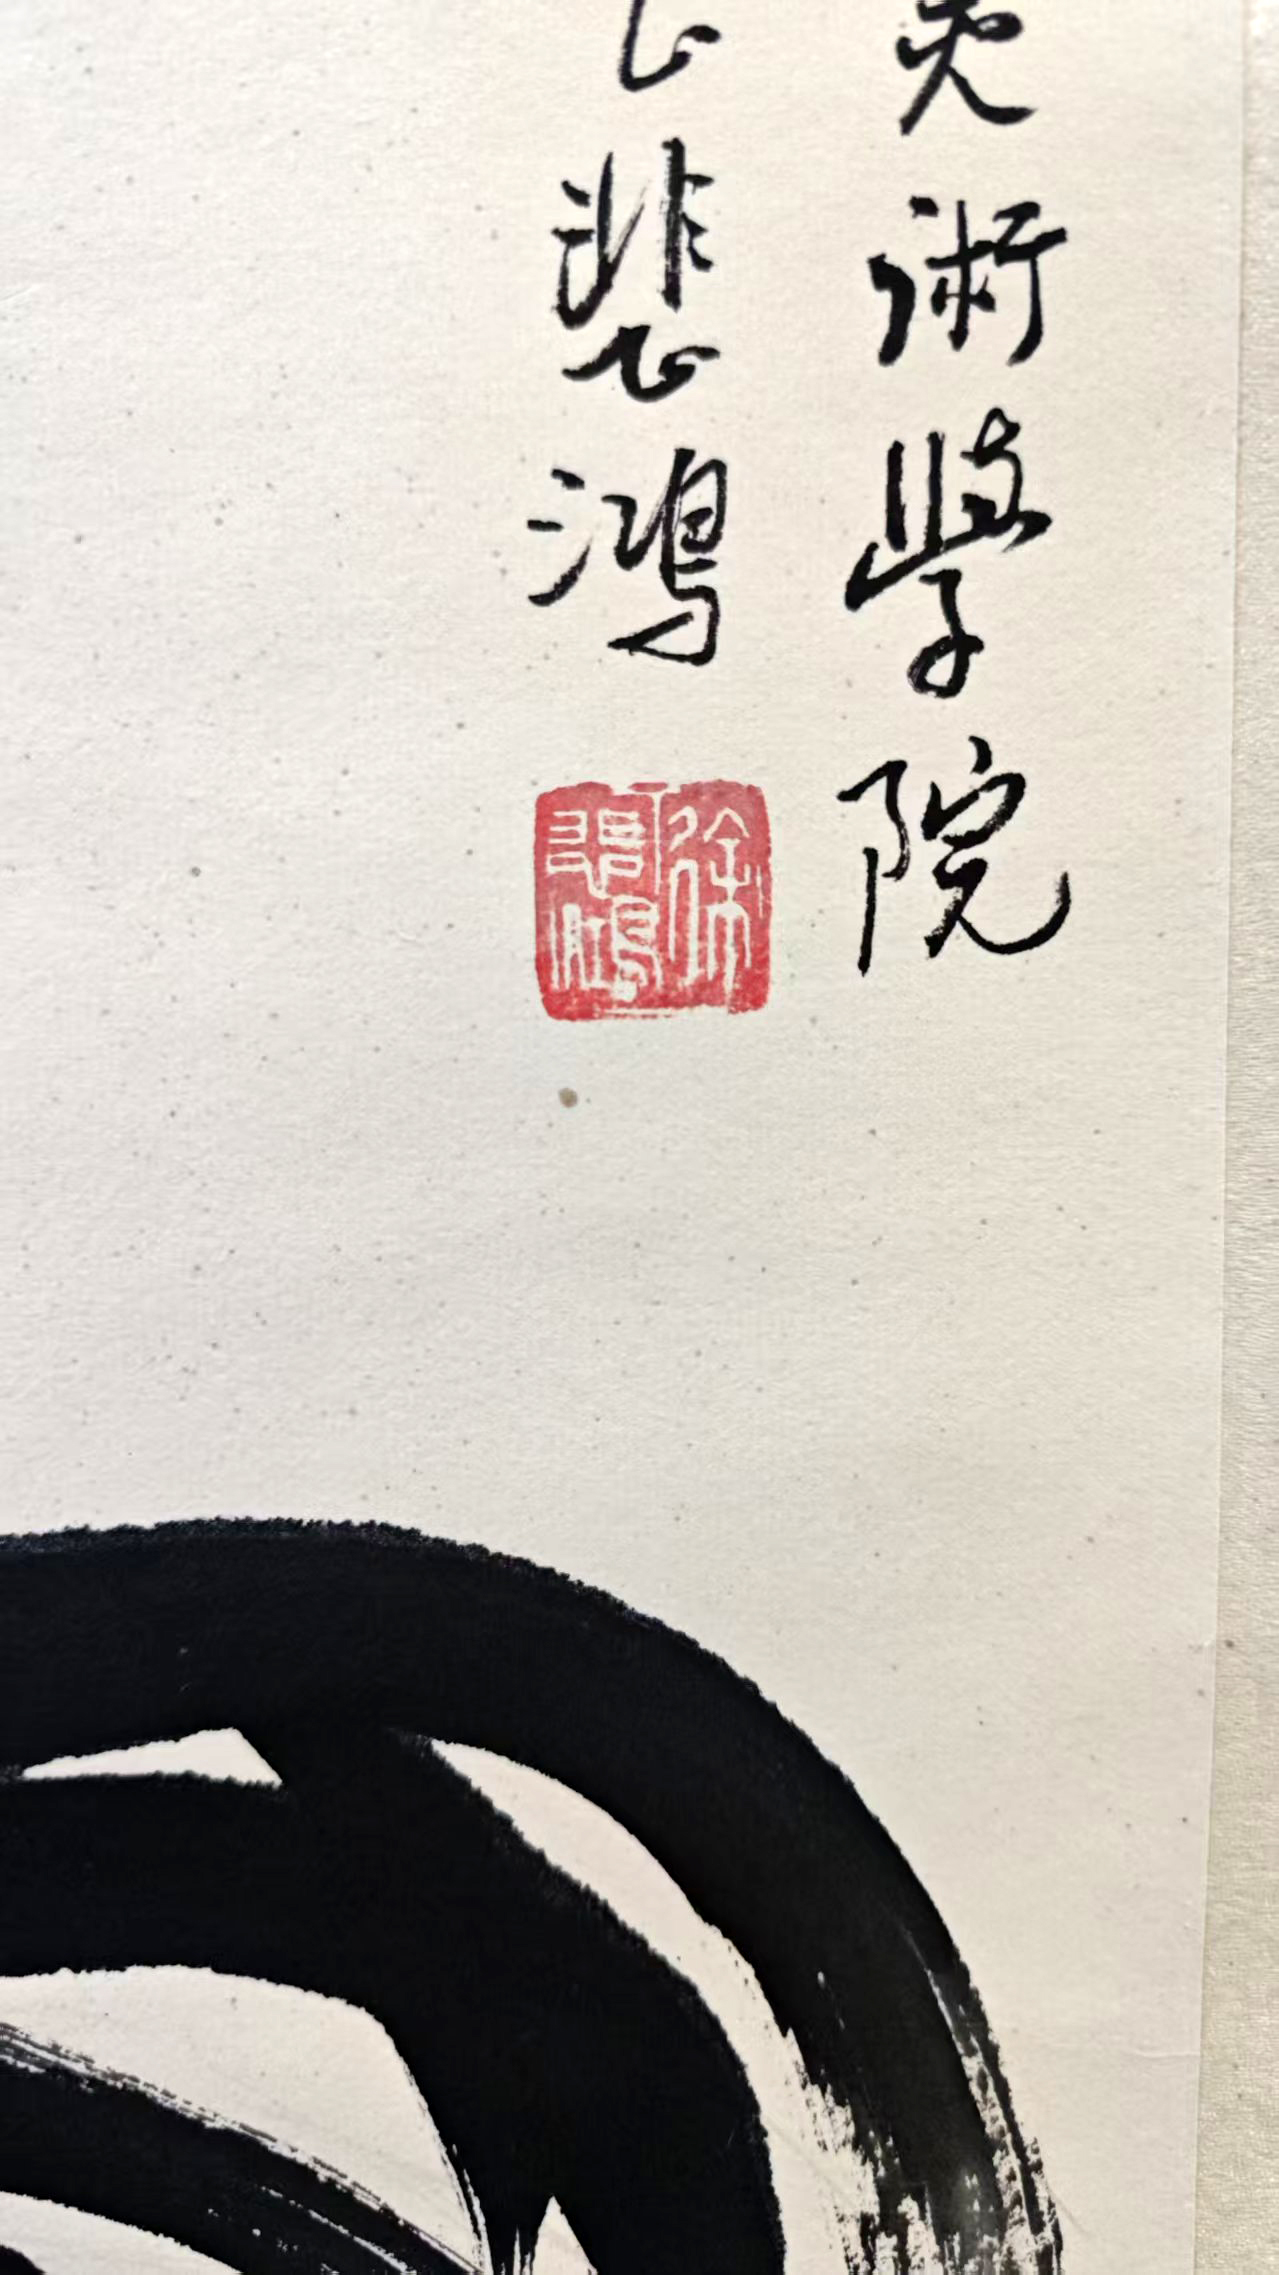 美術學院
悲鴻
徐悲鴻